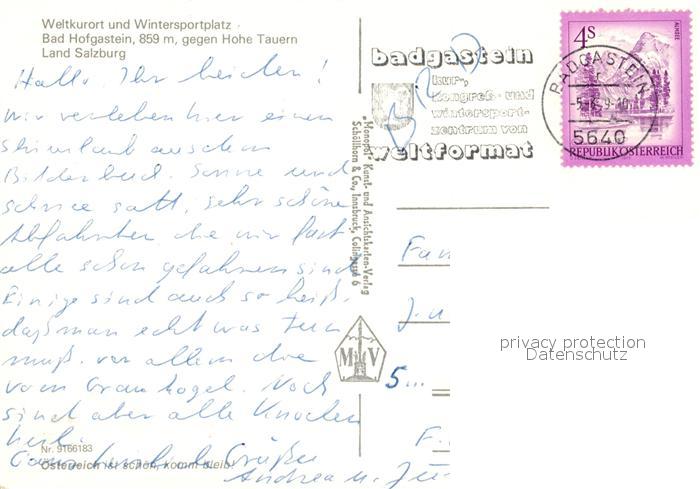 Weltkurort und Wintersportplatz
Bad Hofgastein, 859 m, gegen Hohe Tauern
Land Salzburg
Hallo, Ihr beiden!
wir verleben hier einen
Skiurlaub aus dem
Bilderbuch. Sonne und
Schnee satt, sehr schöne
Abfahrten die wir fast
alle schon gefahren sind
Einige sind auch so heiß,
daß man echt was tun
muß. vor allem die
vom Graukogel. Noch
sind aber alle Knochen
heil.
Ganz herzliche Grüße
Andrea u.
Nr. 9166183
Österreich ist schön, komm bleib!
"Monopol" Kunst- und Ansichtskarten-Verlag
Schöllhorn & Co., Innsbruck, Colingasse 6
MV
badgastein
kur-,
kongreß- und
wintersport-
zentrum von
weltformat
BRD
4S
ALMSEE
REPUBLIK ÖSTERREICH
BADGASTEIN
5640
Fam
5...
F.
privacy protection
Datenschutz